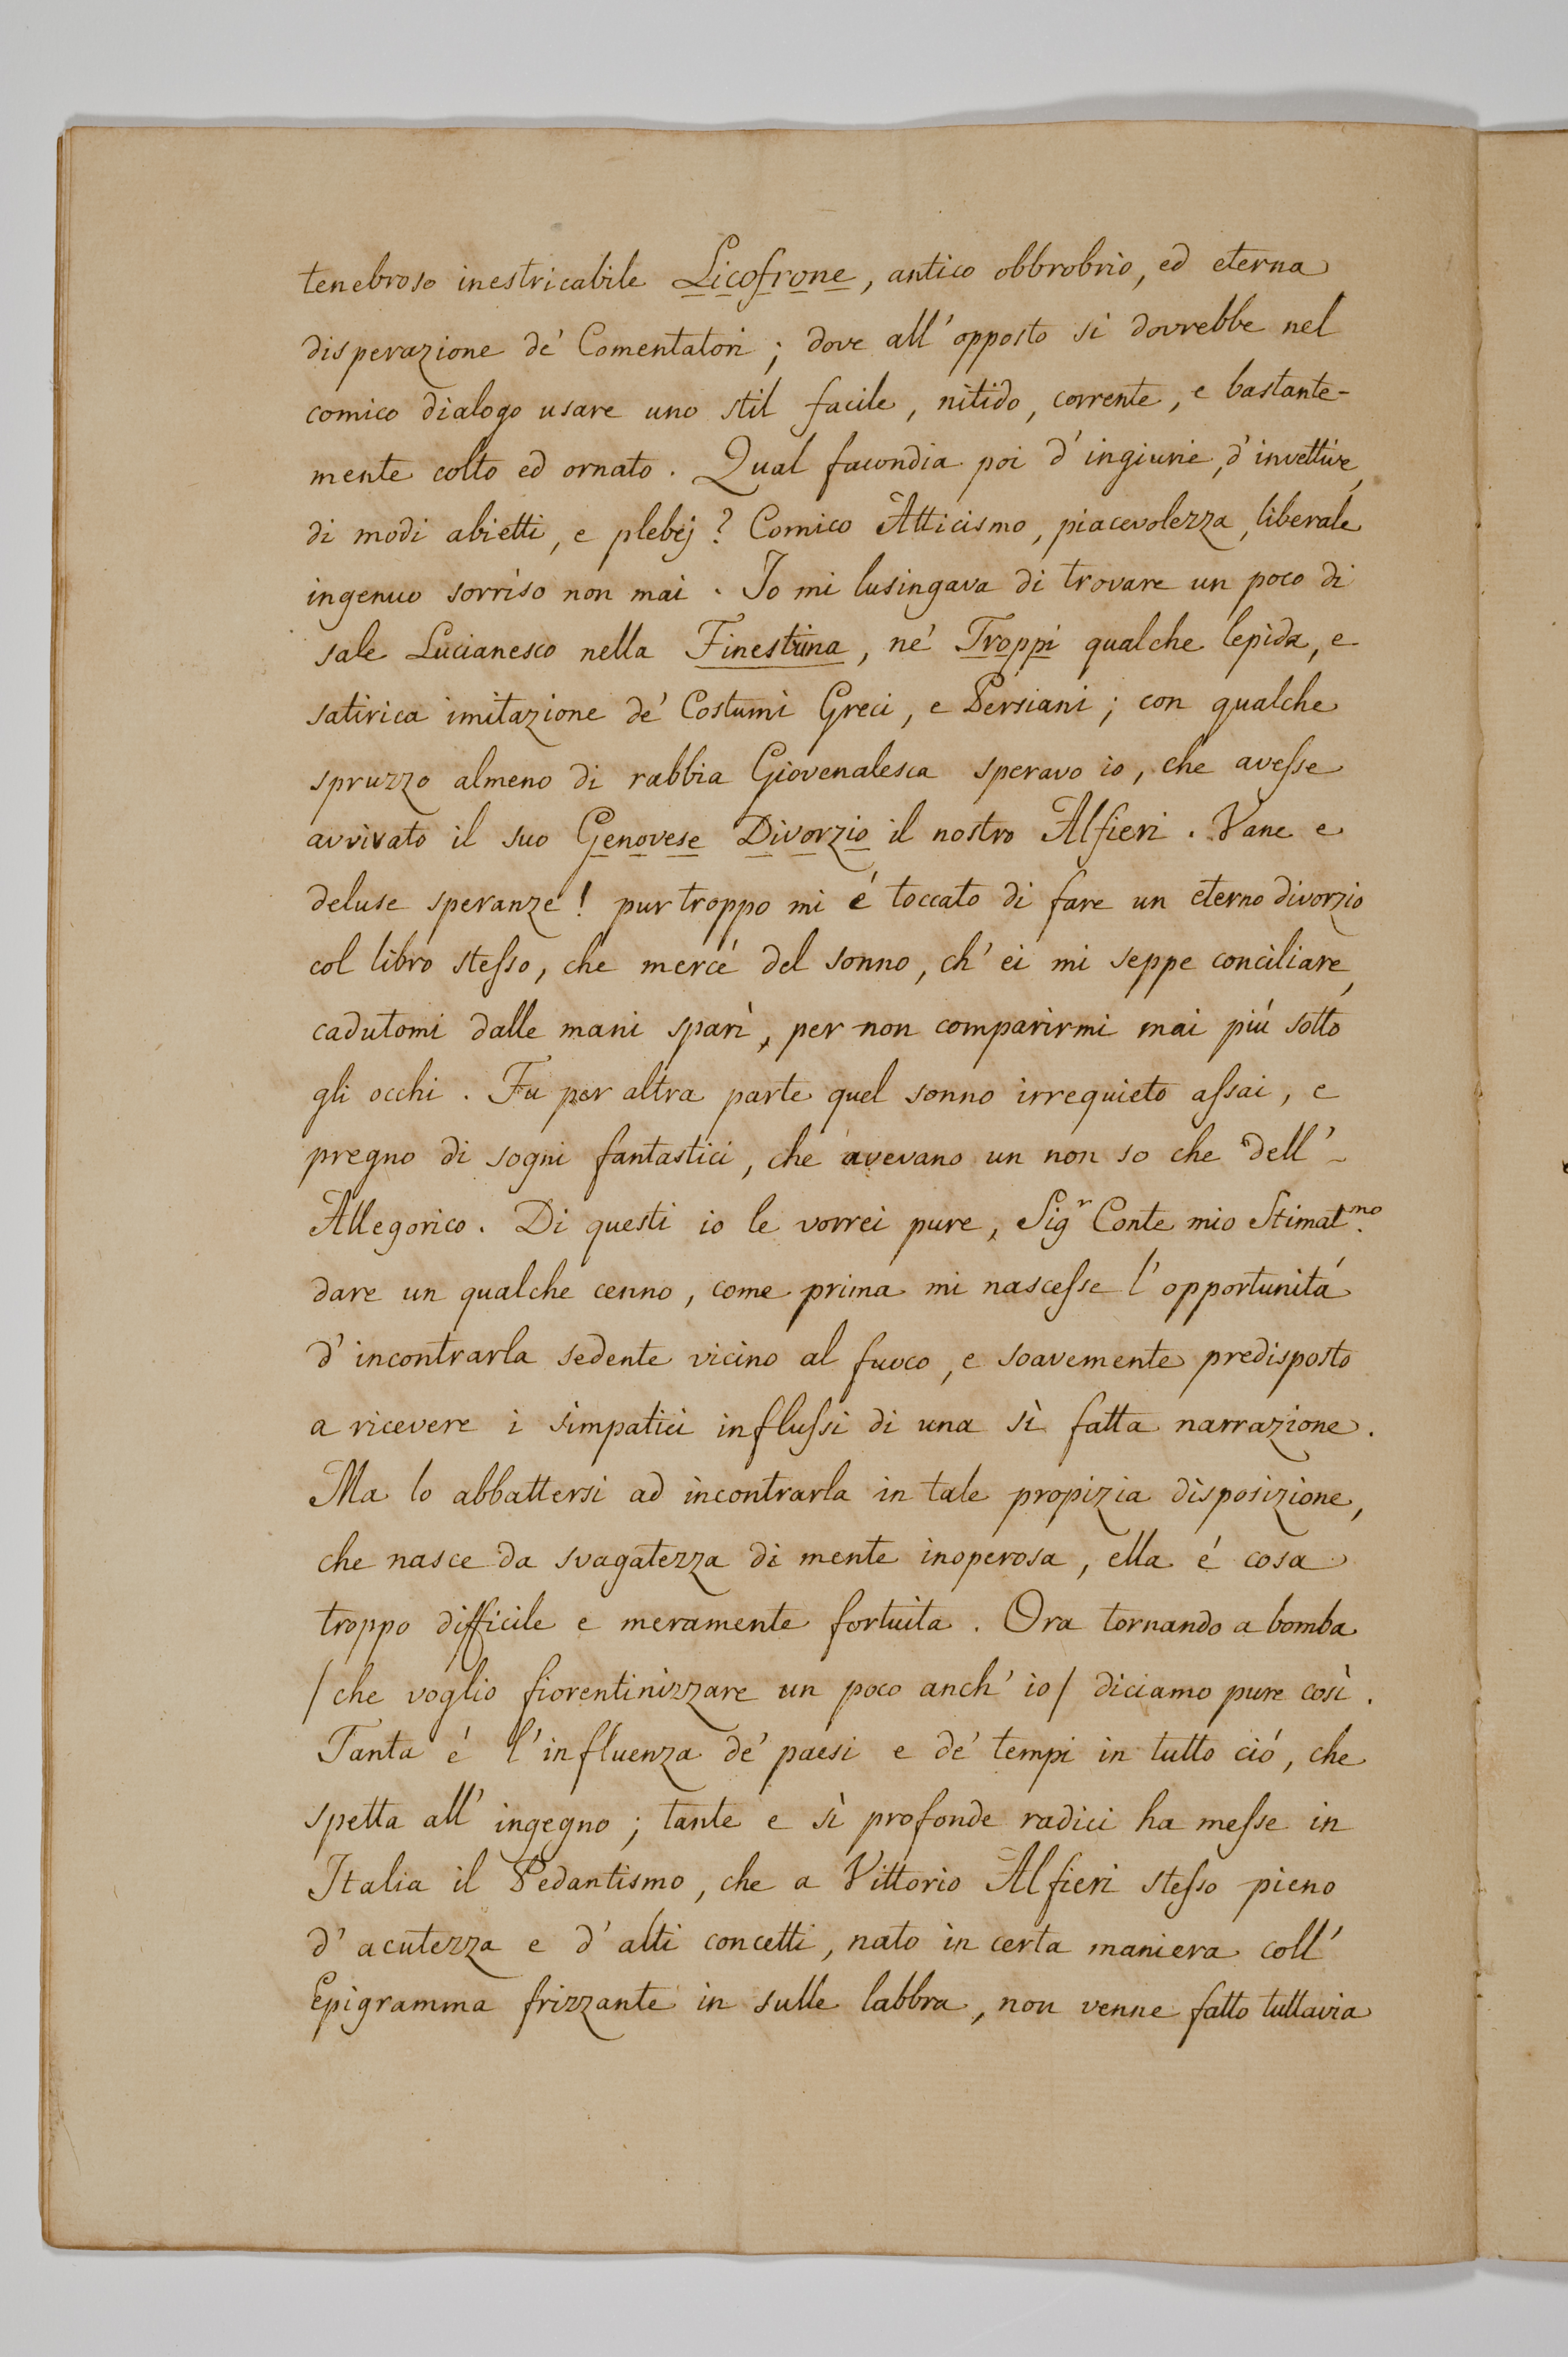 tenebroso inestricabile Licofrone, antico obbrobrio, ed eterna
disperazione de' Comentatori; dove all'opposto si dovrebbe nel
comico dialogo usare uno stil facile, nitido, corrente, e bastante-
mente colto ed ornato. Qual facondia poi d'ingiurie, d'invettive,
di modi abietti, e plebej? Comico Atticismo, piacevolezza, liberale
ingenuo sorriso non mai. Io mi lusingava di trovare un poco di
sale Lucianesco nella Finestrina, ne' Troppi qualche lepida, e
satirica imitazione de' Costumi Greci, e Persiani; con qualche
spruzzo almeno di rabbia Giovenalesca speravo io, che avesse
avvivato il suo Genovese Divorzio il nostro Alfieri. Vane e
deluse speranze! pur troppo mi é toccato di fare un eterno divorzio
col libro stesso, che mercé del sonno, ch'ei mi seppe conciliare,
cadutomi dalle mani sparì, per non comparirmi mai piú sotto
gli occhi. Fu per altra parte quel sonno irrequieto assai, e
pregno di sogni fantastici, che avevano un non so che dell'-
Allegorico. Di questi io le vorrei pure, Sigr Conte mio Stimat.mo
dare un qualche cenno, come prima mi nascesse l'opportunitá
d'incontrarla sedente vicino al fuoco, e soavemente predisposto
a ricevere i simpatici influssi di una sì fatta narrazione.
Ma lo abbattersi ad incontrarla in tale propizia disposizione,
che nasce da svagatezza di mente inoperosa, ella é cosa
troppo difficile e meramente fortuita. Ora tornando a bomba
/che voglio fiorentinizzare un poco anch'io/ diciamo pure così.
Tanta é l'influenza de' paesi e de' tempi in tutto ció, che
spetta all'ingegno; tante e sì profonde radici ha messe in
Italia il Pedantismo, che a Vittorio Alfieri stesso pieno
d'acutezza e d'alti concetti, nato in certa maniera coll'
Epigramma frizzante in sulle labbra, non venne fatto tuttavia